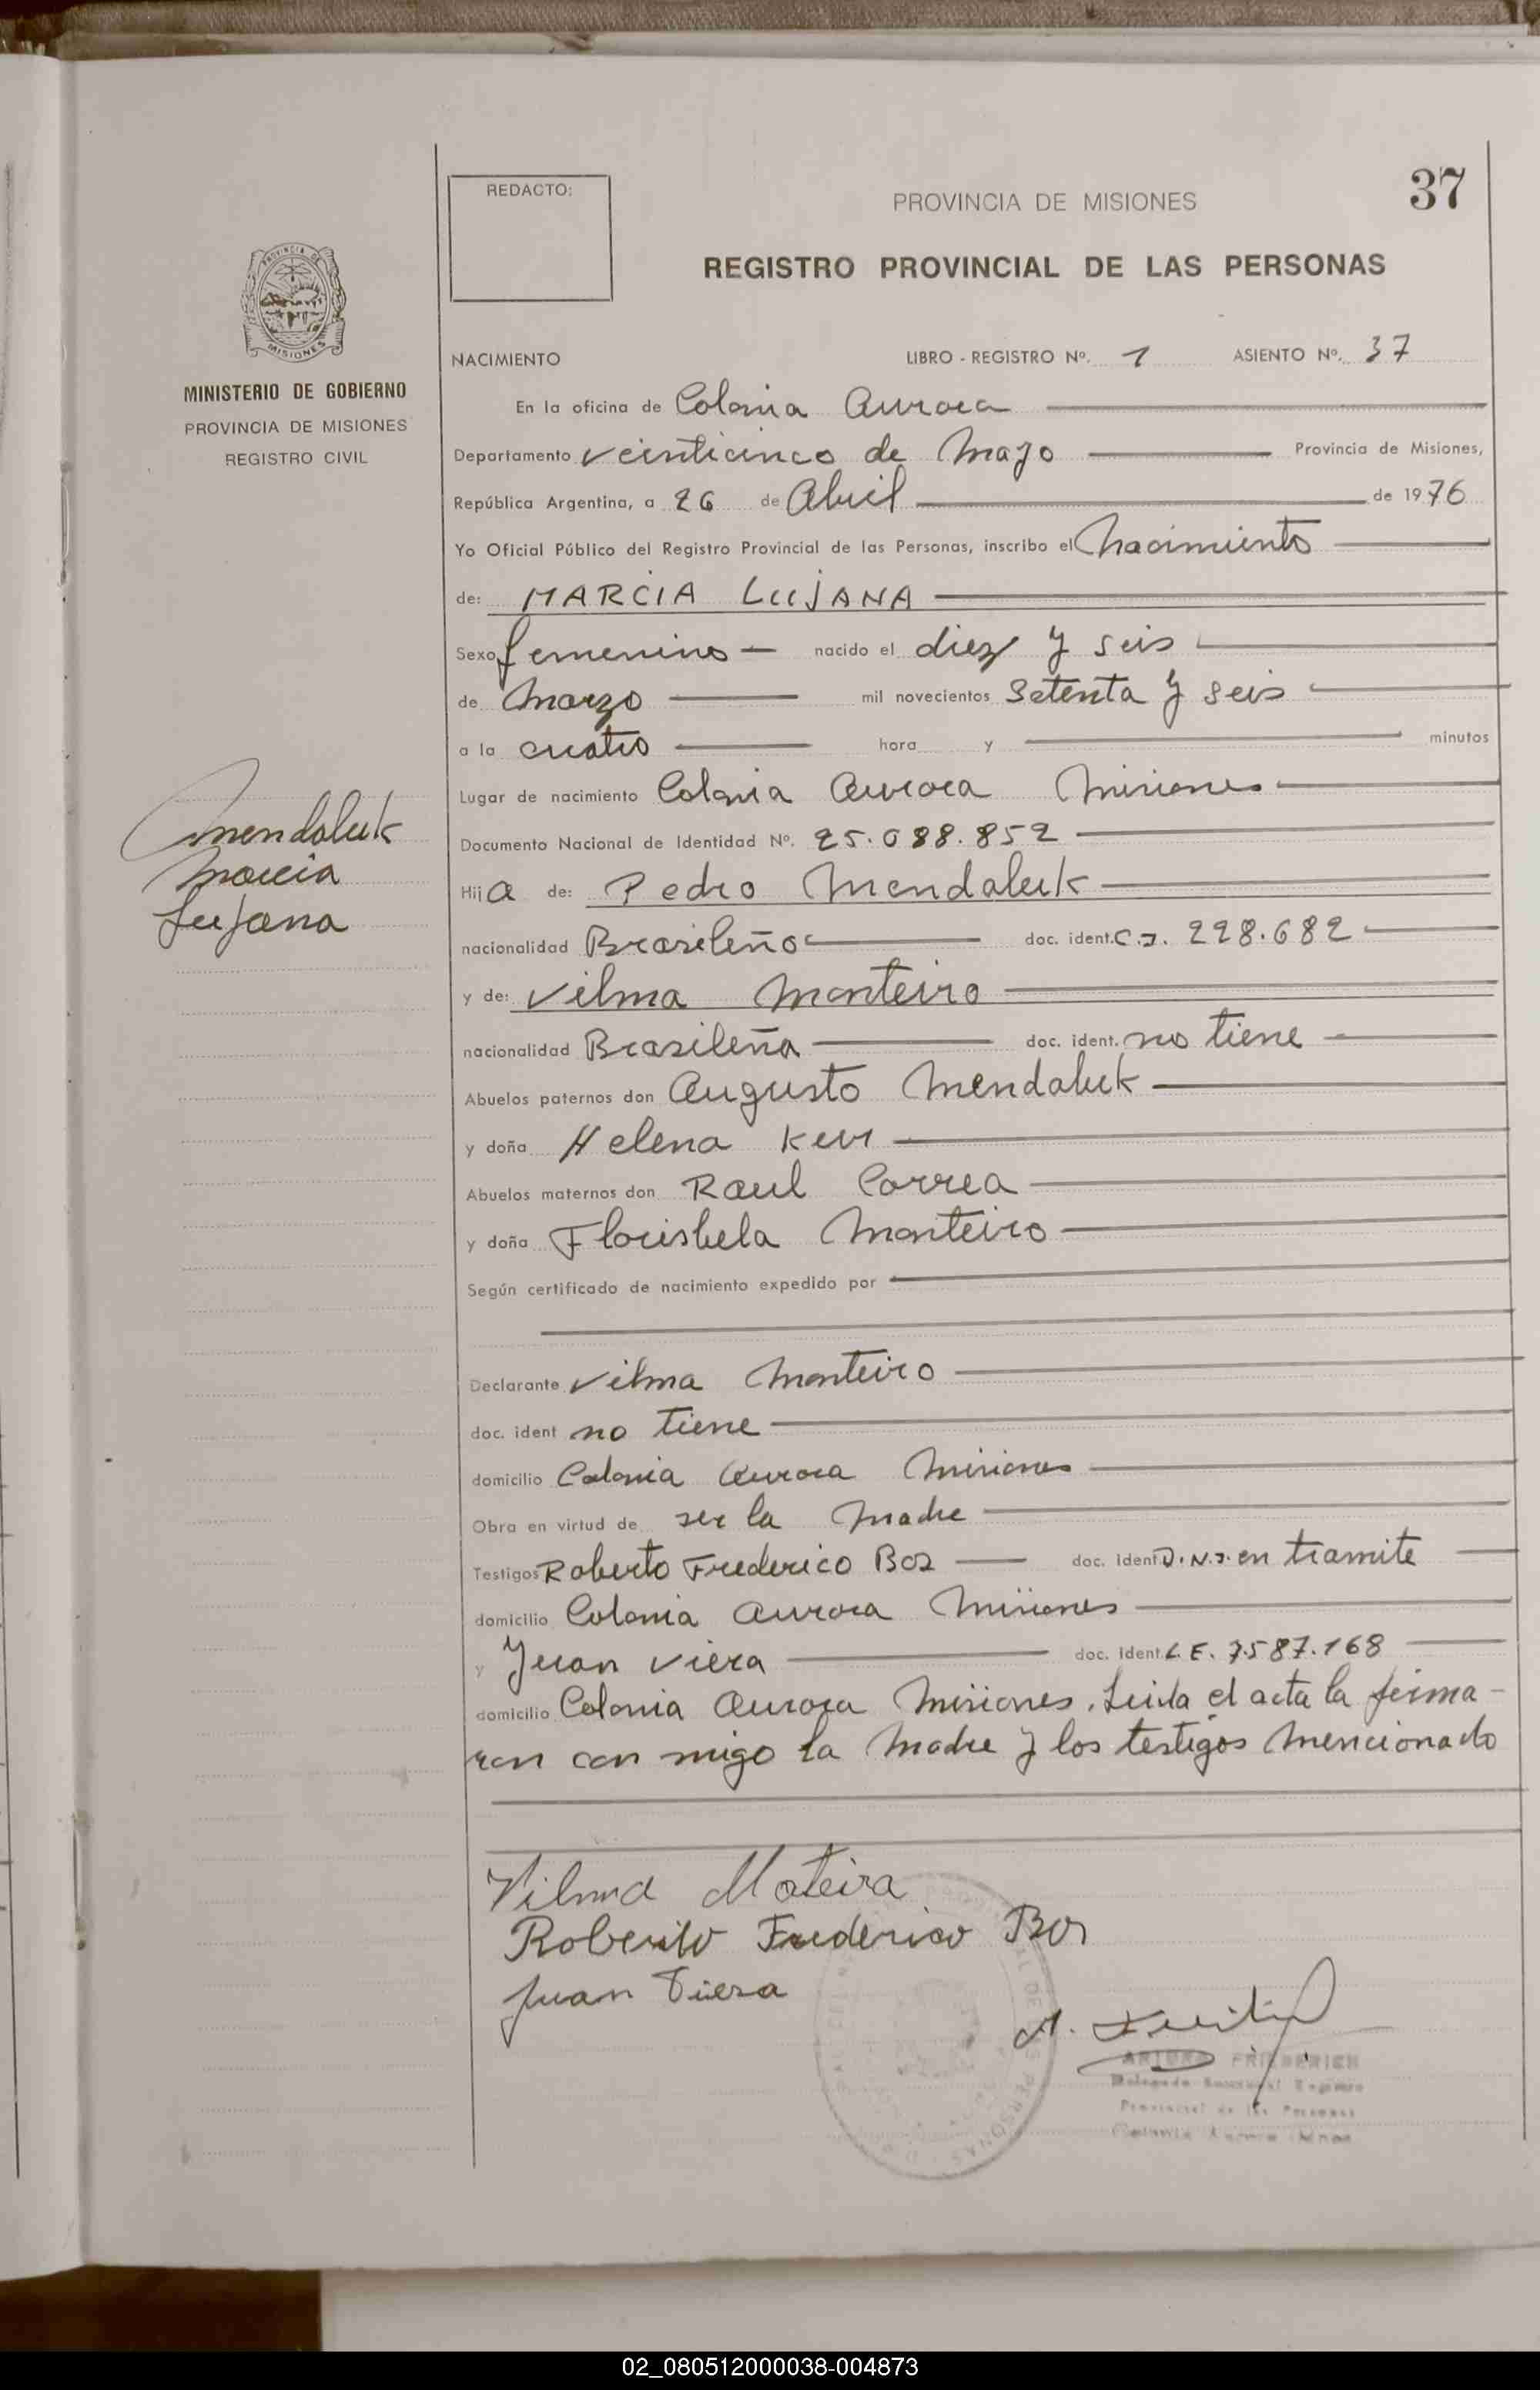 37
REDACTO:
PROVINCIA DE MISIONES
REGISTRO PROVINCIAL DE LAS PERSONAS
PROVINCIA DE
MISIONES
MINISTERIO DE GOBIERNO
PROVINCIA DE MISIONES
REGISTRO CIVIL
NACIMIENTO LIBRO - REGISTRO Nº. 1 ASIENTO Nº. 37
En la oficina de Colonia Aurora
Departamento veinticinco de Mayo Provincia de Misiones,
República Argentina, a 26 de Abril de 1976
Yo Oficial Público del Registro Provincial de las Personas, inscribo el Nacimiento
de: MARCIA LUJANA
Sexo femenino nacido el diez y seis
de Marzo mil novecientos Setenta y seis
a la cuatro hora y minutos
Lugar de nacimiento Colonia Aurora Misiones
Documento Nacional de Identidad Nº. 25.088.852
Mendaluk
Marcia
Lujana
Hija de: Pedro Mendaluk
nacionalidad Brasileño doc. ident. C.I. 228.682
y de: Vilma Monteiro
nacionalidad Brasileña doc. ident. no tiene
Abuelos paternos don Augusto Mendaluk
y doña Helena
Abuelos maternos don Raul Correa
y doña Florisbela Monteiro
Según certificado de nacimiento expedido por
Declarante Vilma Monteiro
doc. ident no tiene
domicilio Colonia Aurora Misiones
Obra en virtud de ser la Madre
Testigos Roberto Frederico Bos doc. ident D.N.I. en tramite
domicilio Colonia Aurora Misiones
y Juan Viera doc. ident L.E. 7.587.168
domicilio Colonia Aurora Misiones. Leida el acta la firma-
ran con migo la Madre y los testigos Mencionado
Vilma Moteira
Roberto Frederico Bos
Juan Viera
Provincial de las Personas
Colonia Aurora Mnes
02_080512000038-004873